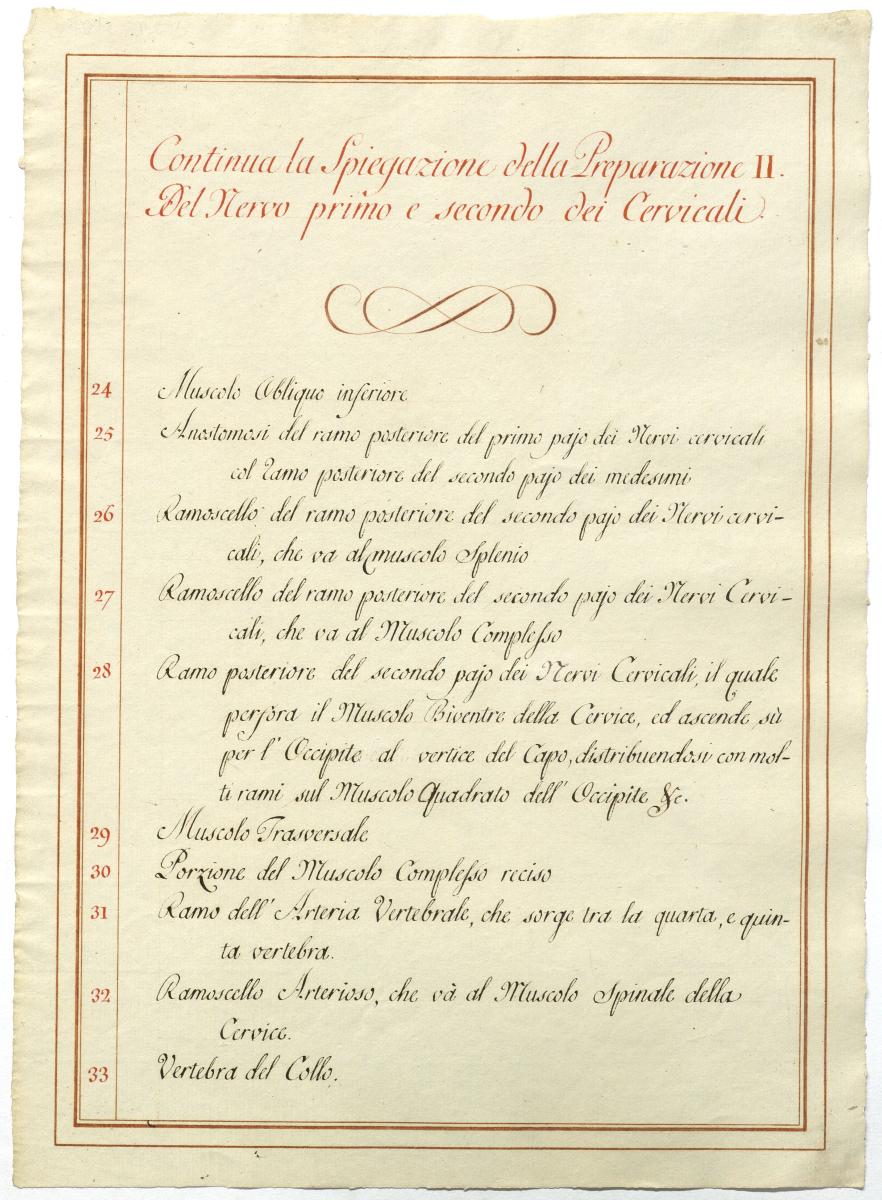 Continua la Spiegazione della Preparazione II.
Del Nervo primo e secondo dei Cervicali.
24 Muscolo Obliquo inferiore
25 Anostomosi del ramo posteriore del primo pajo dei Nervi cervicali
col ramo posteriore del secondo pajo dei medesimi
26 Ramoscello del ramo posteriore del secondo pajo dei Nervi cervi-
cali, che va al muscolo Splenio
27 Ramoscello del ramo posteriore del secondo pajo dei Nervi Cervi-
cali, che va al Muscolo Complesso
28 Ramo posteriore del secondo pajo dei Nervi Cervicali, il quale
perfora il Muscolo Biventre della Cervice, ed ascende sù
per l' Occipite al vertice del Capo, distribuendosi con mol-
ti rami sul Muscolo Quadrato dell' Occipite &c.
29 Muscolo Trasversale
30 Porzione del Muscolo Complesso reciso
31 Ramo dell' Arteria Vertebrale, che sorge tra la quarta, e quin-
ta vertebra.
32 Ramoscello Arterioso, che và al Muscolo Spinale della
Cervice.
33 Vertebra del Collo.